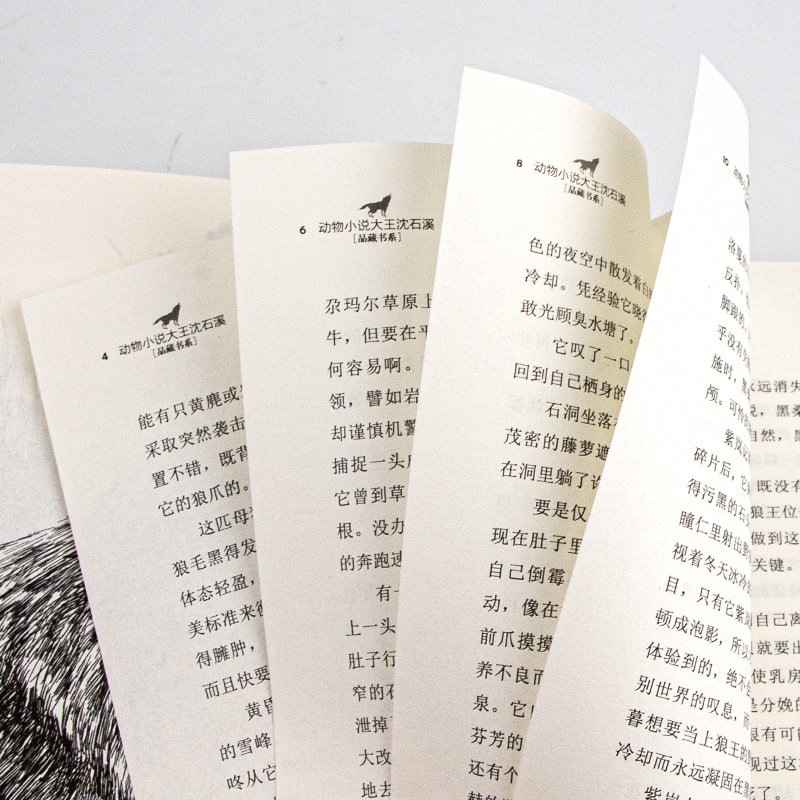 4 动物小说大王沈石溪
[品藏书系]
能有只黄麂或
采取突然袭击
置不错，既背
它的狼爪的。
这匹母
狼毛黑得发
体态轻盈，
美标准来
得臃肿，
而且快要
黄昏
的雪峰
咚从它
6 动物小说大王沈石溪
[品藏书系]
尕玛尔草原上
牛，但要在平
何容易啊。
领，譬如岩
却谨慎机警
捕捉一头
它曾到草
根。没办
的奔跑速
有一
上一头
肚子行
窄的石
泄掉
大改
地去
8 动物小说大王沈石溪
[品藏书系]
色的夜空中散发着
冷却。凭经验它晓
敢光顾臭水塘了。
它叹了一口
回到自己栖身的
石洞坐落
茂密的藤萝遮
在洞里躺了
要是仅
现在肚子里
自己倒霉
动，像在
前爪摸摸
养不良而
泉。它
芬芳的
还有个
10 动物小
[品
反扑，
脚跟的
乎没有
施时，
颅。可怜
紫岚
碎片后，它
得污黑的石
瞳仁里射出野
视着冬天冰冷
目，只有它紫岚
顿成泡影，所以
体验到的，绝不
别世界的叹息，而
暮想要当上狼王的
冷却而永远凝固在
紫岚
永远消失
说，黑桑
自然，黑
既没有
狼王位
做到这
关键。
自己离
就要出
使乳房
是分娩的
很有可能
见过这
死了。